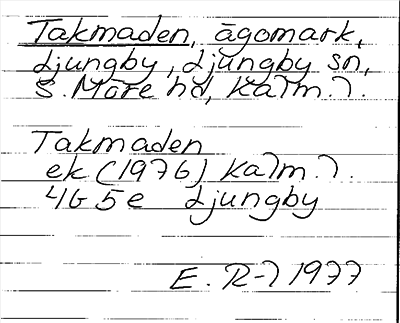 Takmaden, ägomark,
Ljungby, Ljungby sn,
S. Möre hd, Kalm. l.
Takmaden
ek (1976) Kalm. l.
4G 5e Ljungby
E. R-l 1977